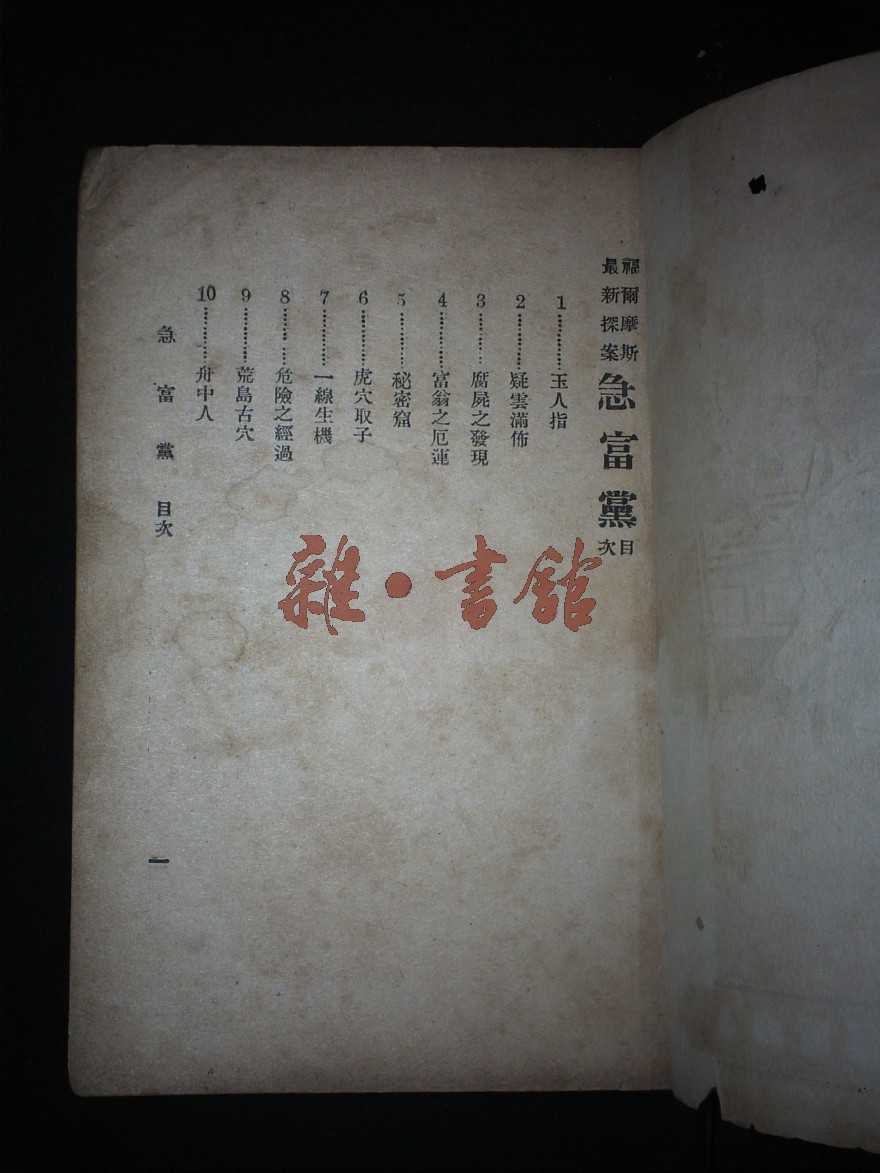 福爾摩斯
最新探案
急富黨
目次
1…………玉人指
2…………疑雲滿佈
3…………腐屍之發現
4…………富翁之厄運
5…………秘密窟
6…………虎穴取子
7…………一線生機
8…………危險之經過
9…………荒島古穴
10…………舟中人
急富黨 目次
一
雜·書館